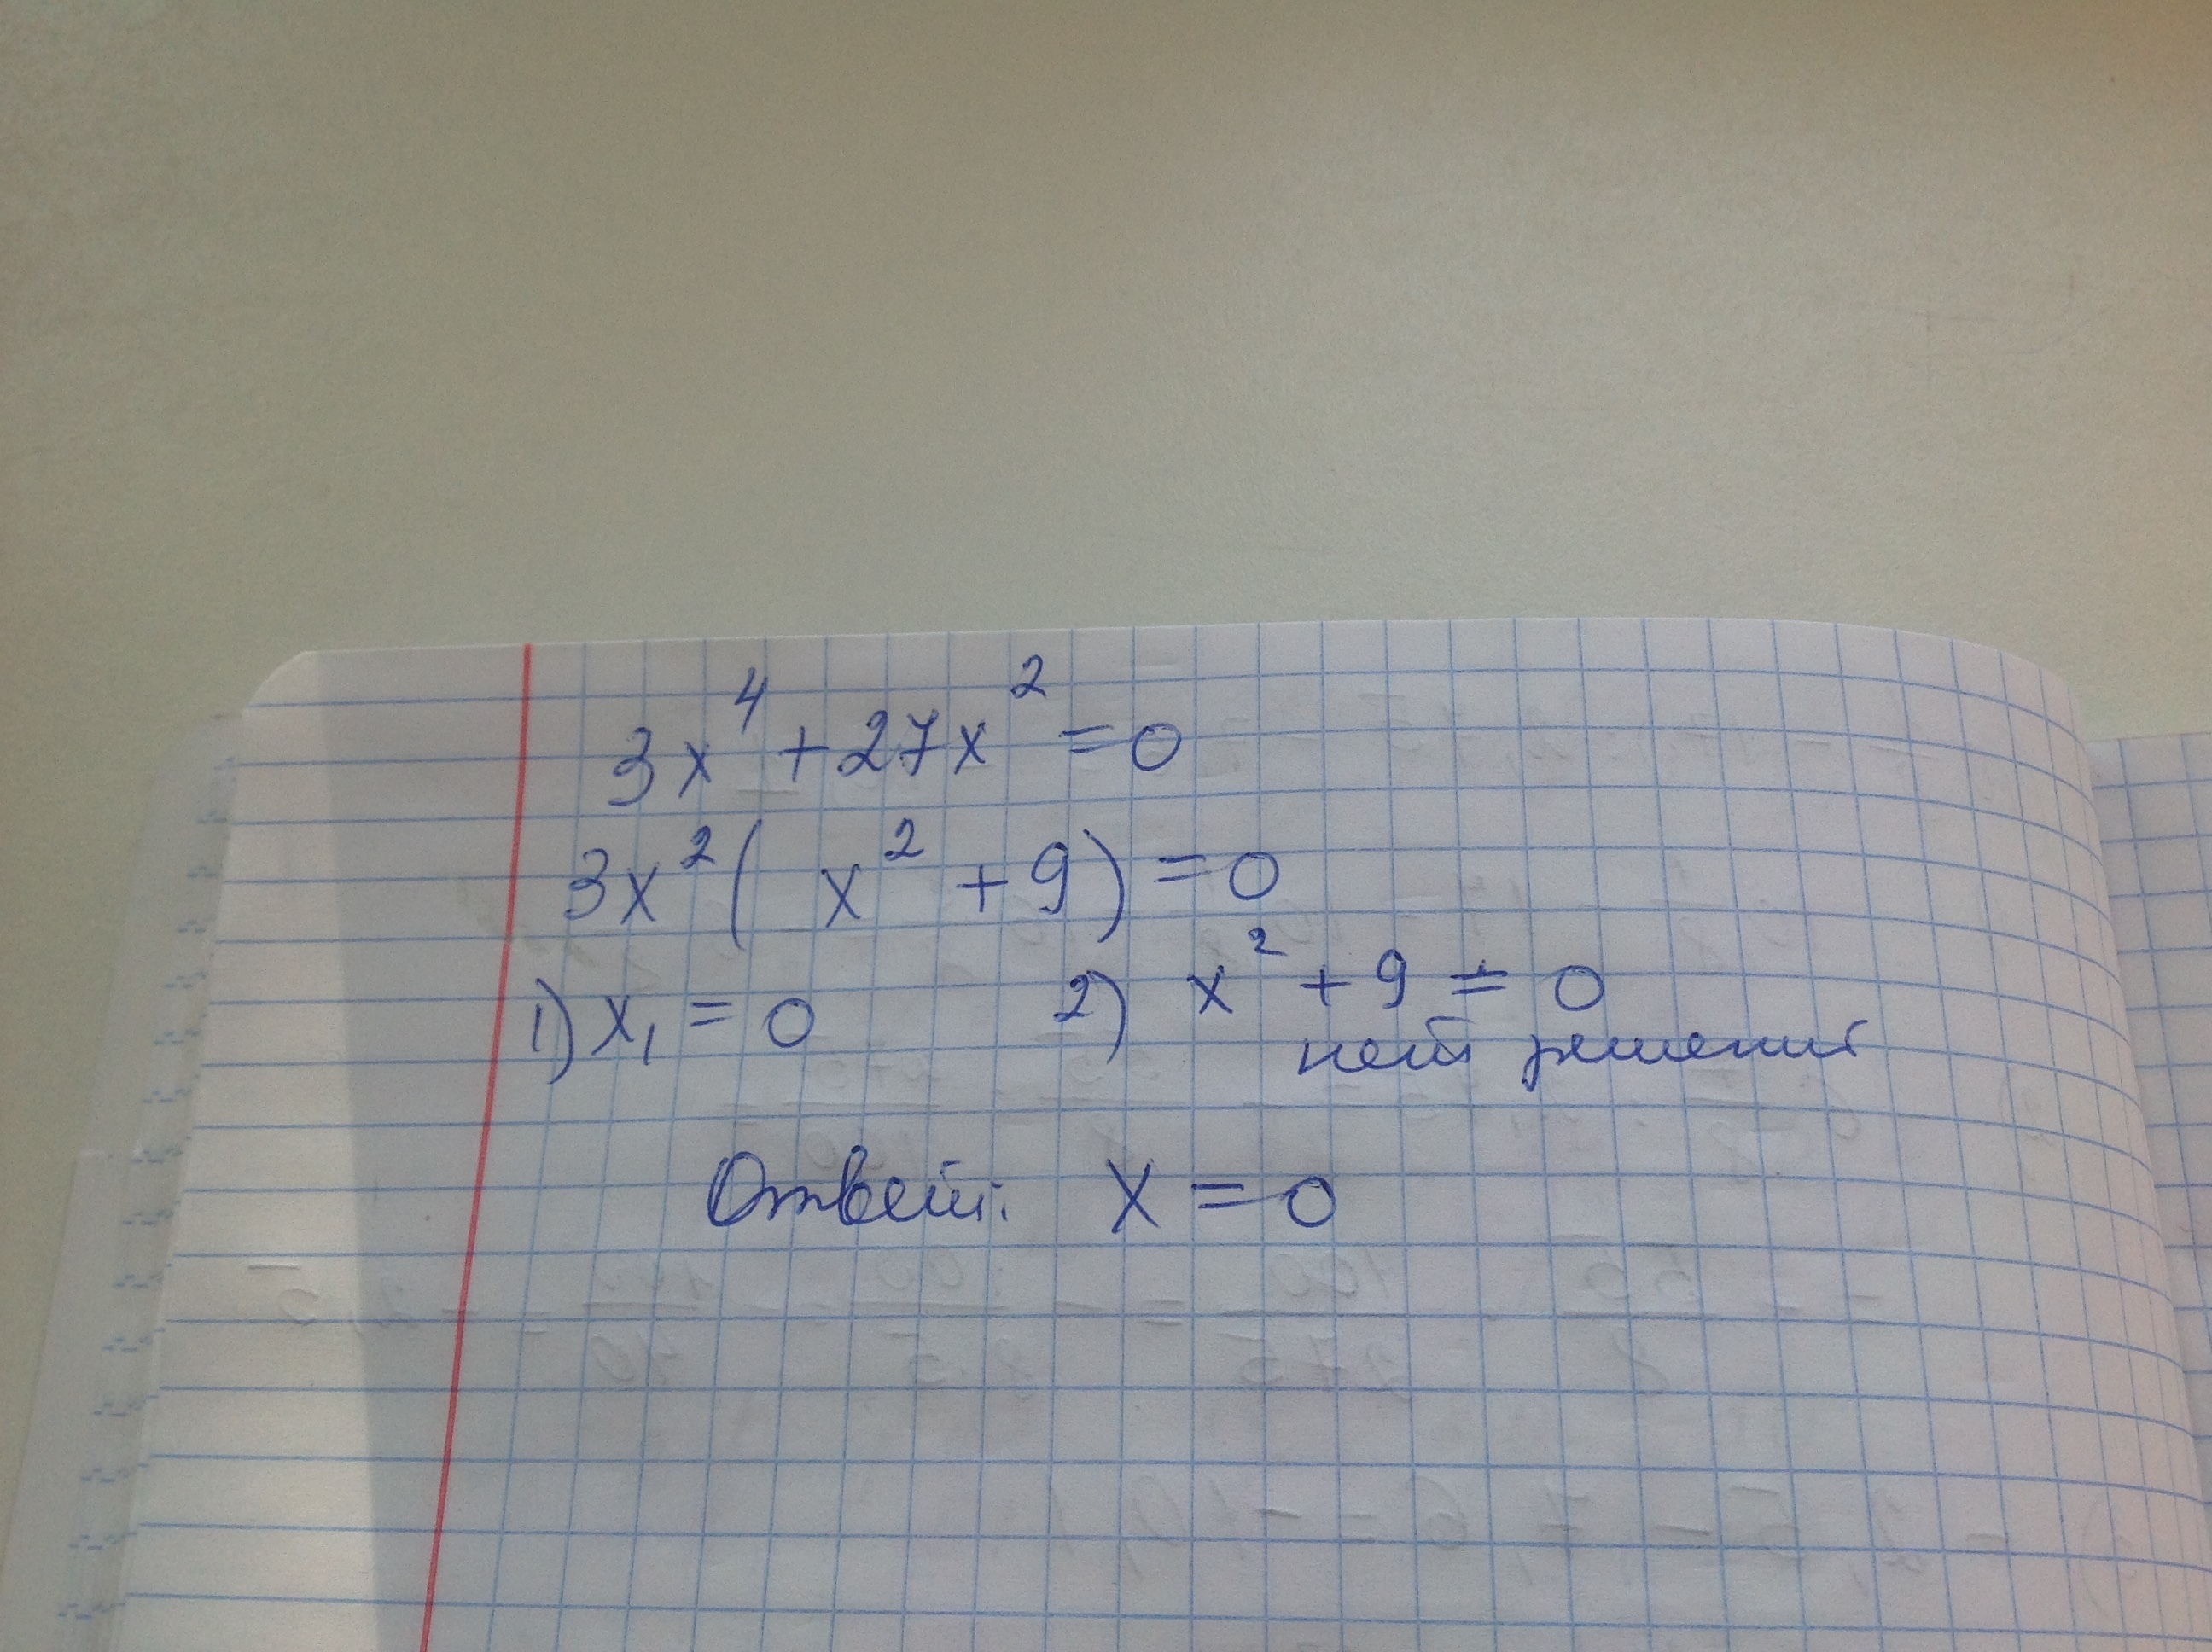 3x⁴ + 27x² = 0
3x² ( x² + 9) = 0
1) x₁ = 0 2) x² + 9 = 0
нет решений
Ответ: x = 0